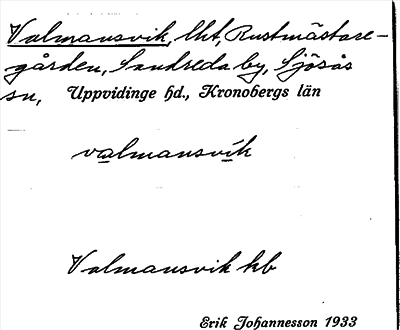 Valmansvik, lht, Rustmästare-
gården, Sandreda by, Sjösås
sn, Uppvidinge hd., Kronobergs län
valmansvik
Valmansvik kb
Erik Johannesson 1933